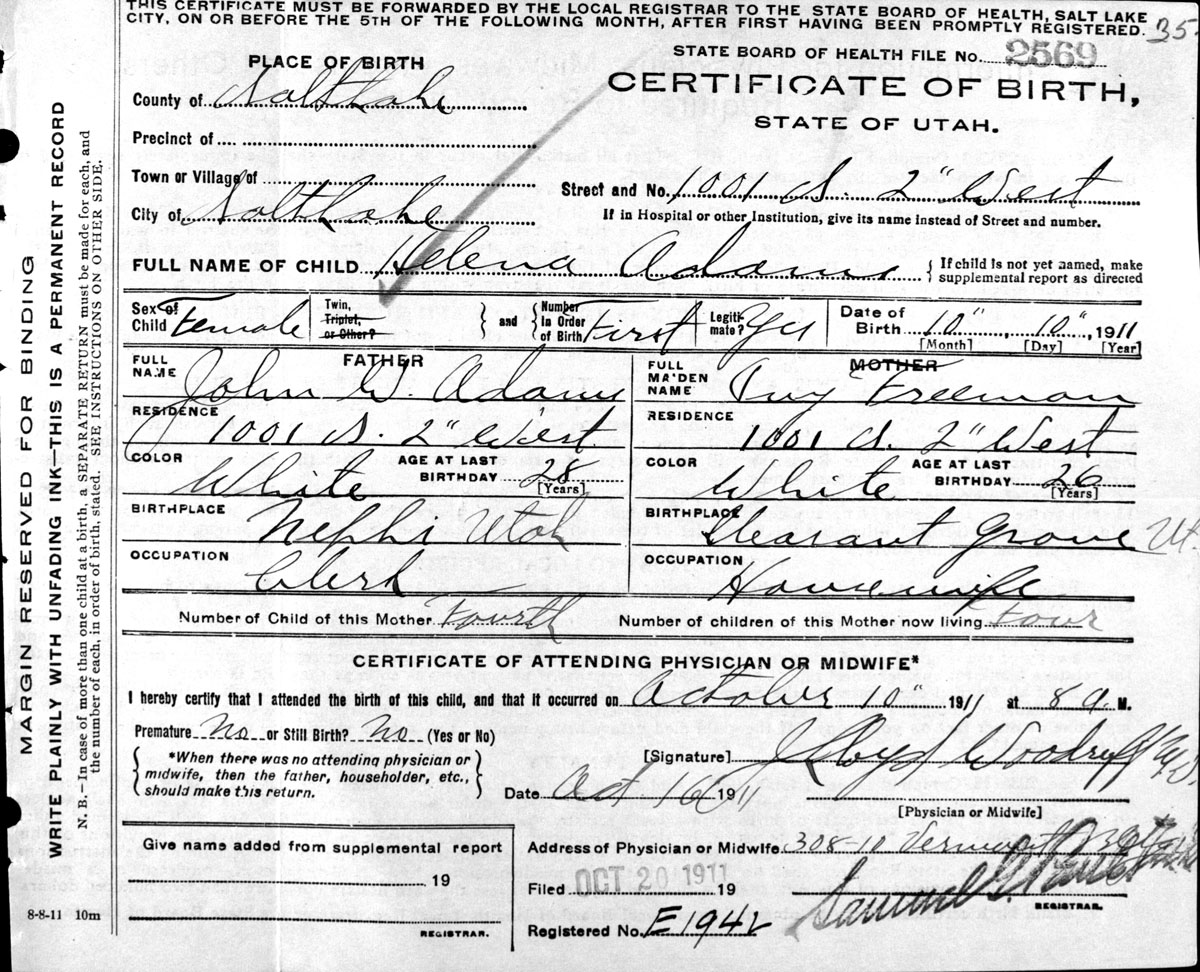 THIS CERTIFICATE MUST BE FORWARDED BY THE LOCAL REGISTRAR TO THE STATE BOARD OF HEALTH, SALT LAKE
CITY, ON OR BEFORE THE 5TH OF THE FOLLOWING MONTH, AFTER FIRST HAVING BEEN PROMPTLY REGISTERED. 35
STATE BOARD OF HEALTH FILE No. 2569
CERTIFICATE OF BIRTH,
STATE OF UTAH.
PLACE OF BIRTH
County of Salt Lake
Precinct of
Town or Village of
City of Salt Lake
Street and No. 1001 S. 2" West
If in Hospital or other Institution, give its name instead of Street and number.
FULL NAME OF CHILD Helena Adams { If child is not yet named, make
supplemental report as directed
Sex of Child Female
Twin, Triplet, or Other? } and { Number In Order of Birth First
Legitimate? Yes
Date of Birth 10" 10", 1911
[Month] [Day] [Year]
FATHER
FULL NAME John W. Adams
RESIDENCE 1001 S. 2" West
COLOR White AGE AT LAST BIRTHDAY 28
[Years]
BIRTHPLACE Nephi Utah
OCCUPATION Clerk
MOTHER
FULL MAIDEN NAME Ivy Freeman
RESIDENCE 1001 S. 2" West
COLOR White AGE AT LAST BIRTHDAY 26
[Years]
BIRTHPLACE Pleasant Grove Ut.
OCCUPATION Housewife
Number of Child of this Mother Fourth Number of children of this Mother now living Four
CERTIFICATE OF ATTENDING PHYSICIAN OR MIDWIFE*
I hereby certify that I attended the birth of this child, and that it occurred on October 10" 1911 at 8 a. M.
Premature No or Still Birth? No (Yes or No)
{ *When there was no attending physician or
midwife, then the father, householder, etc.,
should make this return. }
[Signature] Woodruff M.D.
Date Oct 16 1911
[Physician or Midwife]
Give name added from supplemental report
19
REGISTRAR.
Address of Physician or Midwife 308-10 Vermont
Filed OCT 20 1911 19
Samuel G.
REGISTRAR.
Registered No. E1942
8-8-11 10m
MARGIN RESERVED FOR BINDING
WRITE PLAINLY WITH UNFADING INK—THIS IS A PERMANENT RECORD
N. B.—In case of more than one child at a birth, a SEPARATE RETURN must be made for each, and
the number of each, in order of birth, stated. SEE INSTRUCTIONS ON OTHER SIDE.